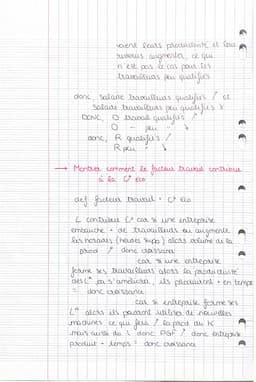 voient leurs productivité et leur
revenus augmenter, ce qui
n'est pas le cas pour les
travailleurs peu qualifiés
donc, salaire travailleurs qualifiés ↗ et
salaire travailleurs peu qualifiés ↘
DONC, D travail qualifiés ↗
D - peu - ↘
donc, R qualifiés ↗
R peu - ↘
→ Montrer comment le facteur travail contribue
à la C° éco
def facteur travail + C° éco
L contribue C° car si une entreprise
embauche + de travailleurs ou augmente
les horaires (heures supp) alors volume de la
prod ↗ donc croissance
car si une entreprise
forme ses travailleurs alors la productivité
des L^rs va s'améliorer, ils produiront + en temps
= donc croissance
car si entreprise forme ses
L^rs alors ils pourront utiliser de nouvelles
machines ce qui fera ↗ la prod du K
mais aussi du L donc PGF ↗ donc entreprise
produit - temps = donc croissance